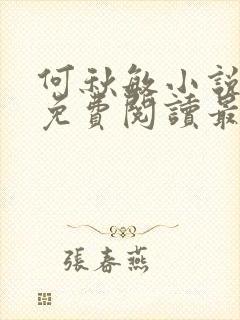 何秋敏小說
免費閱讀最
張春燕